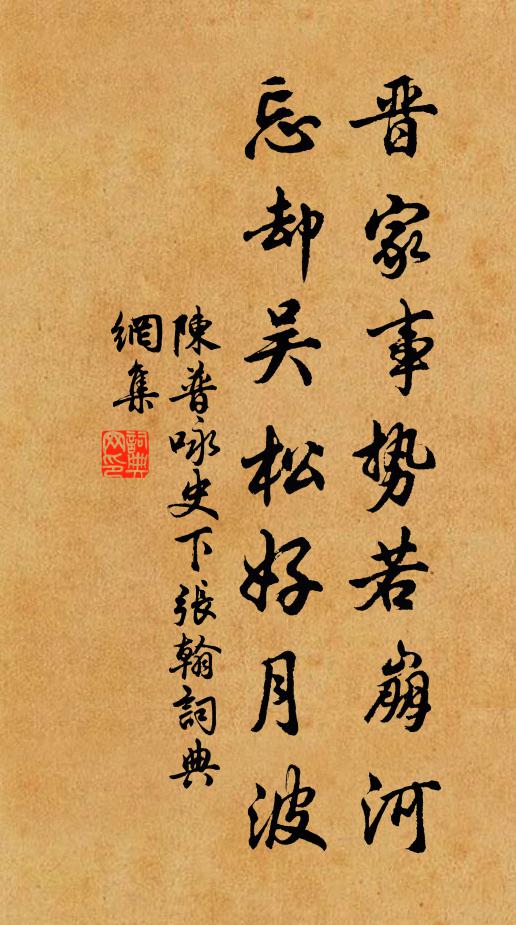 晋家事势若崩河
忘却吴松好月波
陳普咏史下張翰詞典
網集
詞典
网印